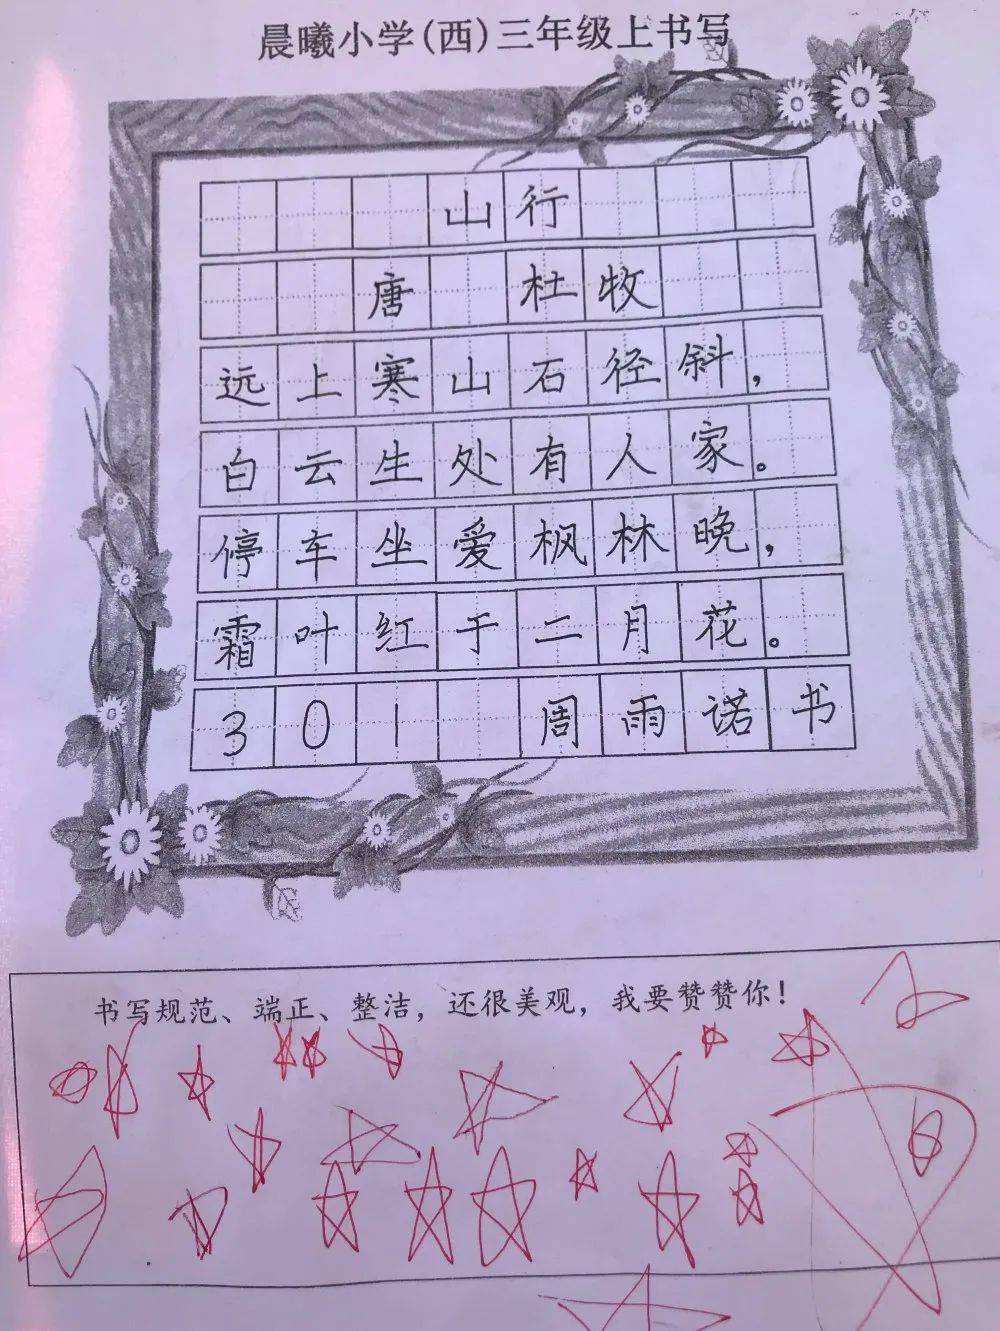 晨曦小学(西)三年级上书写
山行
唐 杜牧
远上寒山石径斜，
白云生处有人家。
停车坐爱枫林晚，
霜叶红于二月花。
301 周雨诺书
书写规范、端正、整洁，还很美观，我要赞赞你！